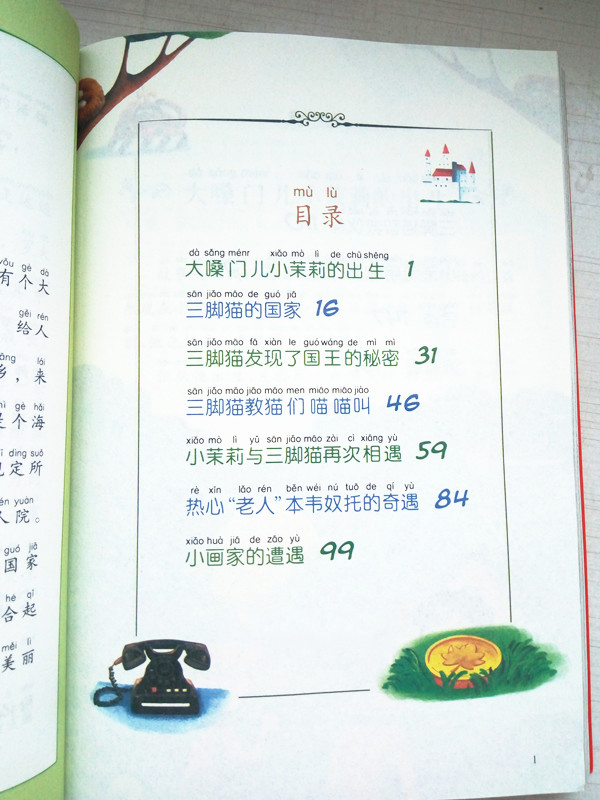 yǒu gè dà
有个大
gěi rén
给人
lái
乡，来
gè hǎi
是个海
dìng suǒ
规定所
yuàn
人院。
guó jiā
国家
hé qǐ
合起
měi lì
美丽
mù lù
目录
dà sǎng ménr xiǎo mò lì de chū shēng
大嗓门儿小茉莉的出生 1
sān jiǎo māo de guó jiā
三脚猫的国家 16
sān jiǎo māo fā xiàn le guó wáng de mì mì
三脚猫发现了国王的秘密 31
sān jiǎo māo jiāo māo men miāo miāo jiào
三脚猫教猫们喵喵叫 46
xiǎo mò lì yǔ sān jiǎo māo zài cì xiāng yù
小茉莉与三脚猫再次相遇 59
rè xīn lǎo rén běn wéi nú tuō de qí yù
热心“老人”本韦奴托的奇遇 84
xiǎo huà jiā de zāo yù
小画家的遭遇 99
1